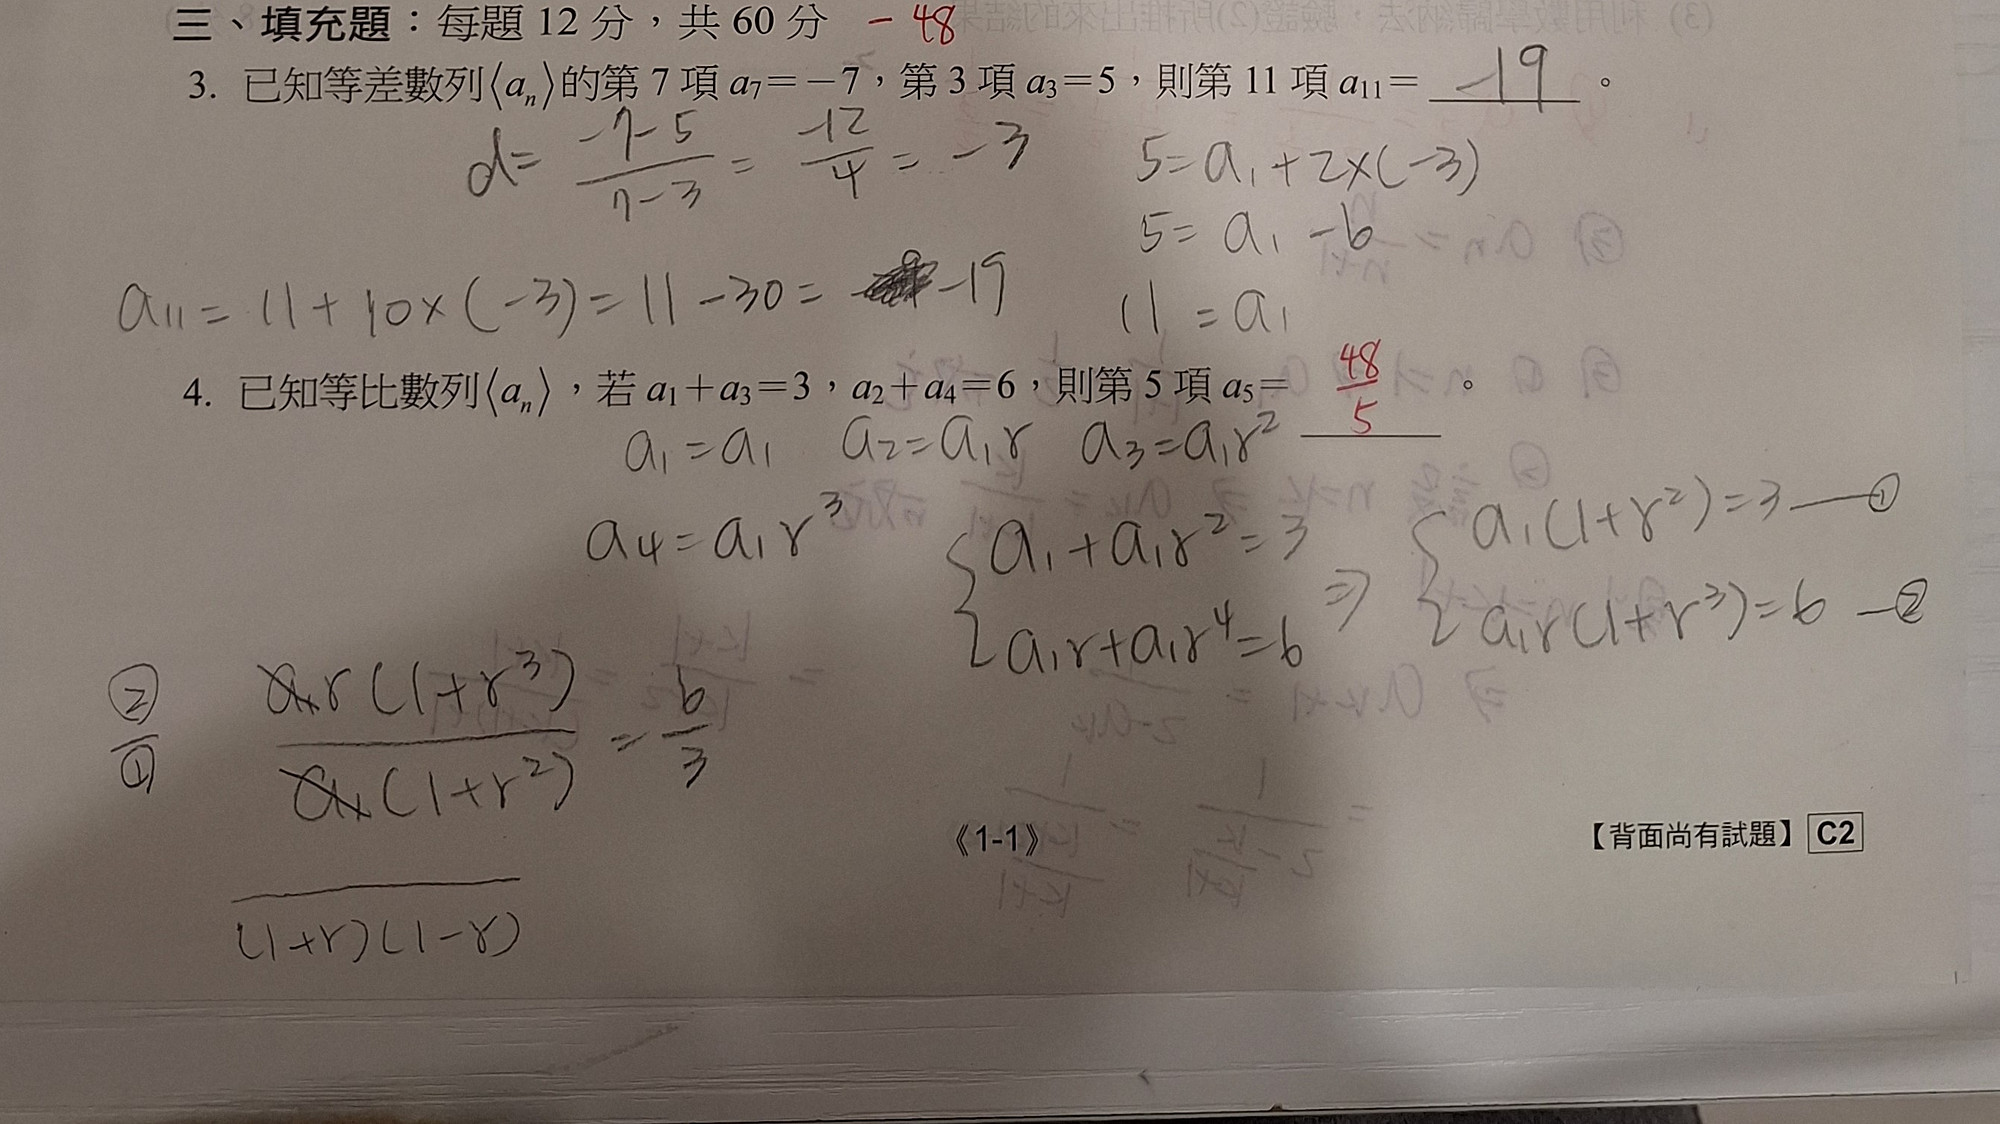 三、填充題：每題 12 分，共 60 分 -48
3. 已知等差數列⟨aₙ⟩的第 7 項 a₇＝－7，第 3 項 a₃＝5，則第 11 項 a₁₁＝ -19 。
d = (-7-5)/(7-3) = -12/4 = -3
5 = a₁ + 2×(-3)
5 = a₁ - 6
11 = a₁
a₁₁ = 11 + 10×(-3) = 11 - 30 = -19
4. 已知等比數列⟨aₙ⟩，若 a₁＋a₃＝3，a₂＋a₄＝6，則第 5 項 a₅＝ 48/5 。
a₁ = a₁ a₂ = a₁r a₃ = a₁r²
a₄ = a₁r³
{ a₁ + a₁r² = 3 ⇒ { a₁(1+r²) = 3 —①
{ a₁r + a₁r⁴ = 6 { a₁r(1+r³) = 6 —②
②/① a₁r(1+r³)/a₁(1+r²) = 6/3
(1+r)(1-r)
《1-1》
【背面尚有試題】 C2